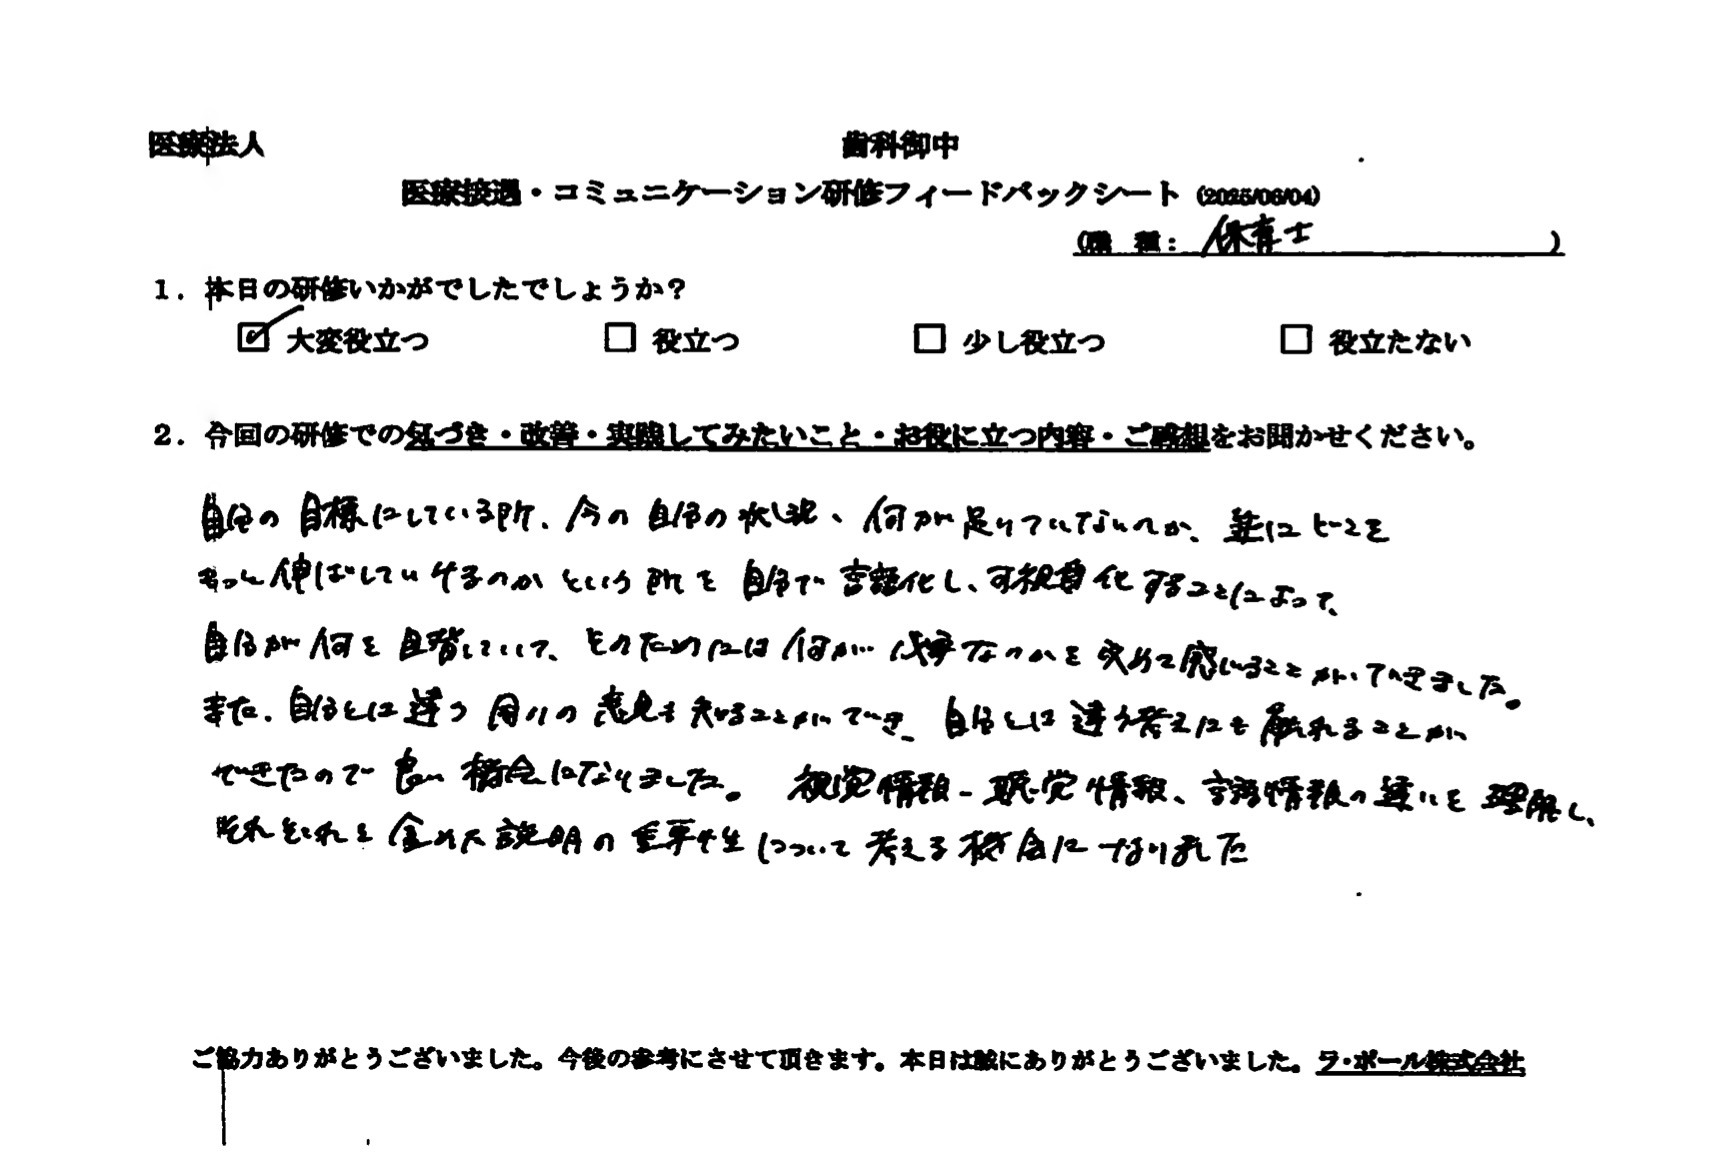 医療法人 歯科御中
医療接遇・コミュニケーション研修フィードバックシート (2025/06/04)
(職 種: 保育士 )
1. 本日の研修いかがでしたでしょうか?
☑ 大変役立つ □ 役立つ □ 少し役立つ □ 役立たない
2. 今回の研修での気づき・改善・実践してみたいこと・お役に立つ内容・ご感想をお聞かせください。
自分の目標にしている所、今の自分の状況、何が足りていないのか、逆にどこを
もっと伸ばしていけるのかという所を自分で言語化し、可視化することによって、
自分が何を目指していて、そのためには何が必要なのかを改めて感じることができました。
また、自分とは違う周りの意見も知ることができ、自分とは違う考えにも触れることが
できたので良い機会になりました。 視覚情報、聴覚情報、言語情報の違いを理解し、
それぞれを含めた説明の重要性について考える機会になりました
ご協力ありがとうございました。今後の参考にさせて頂きます。本日は誠にありがとうございました。ラ・ポール株式会社